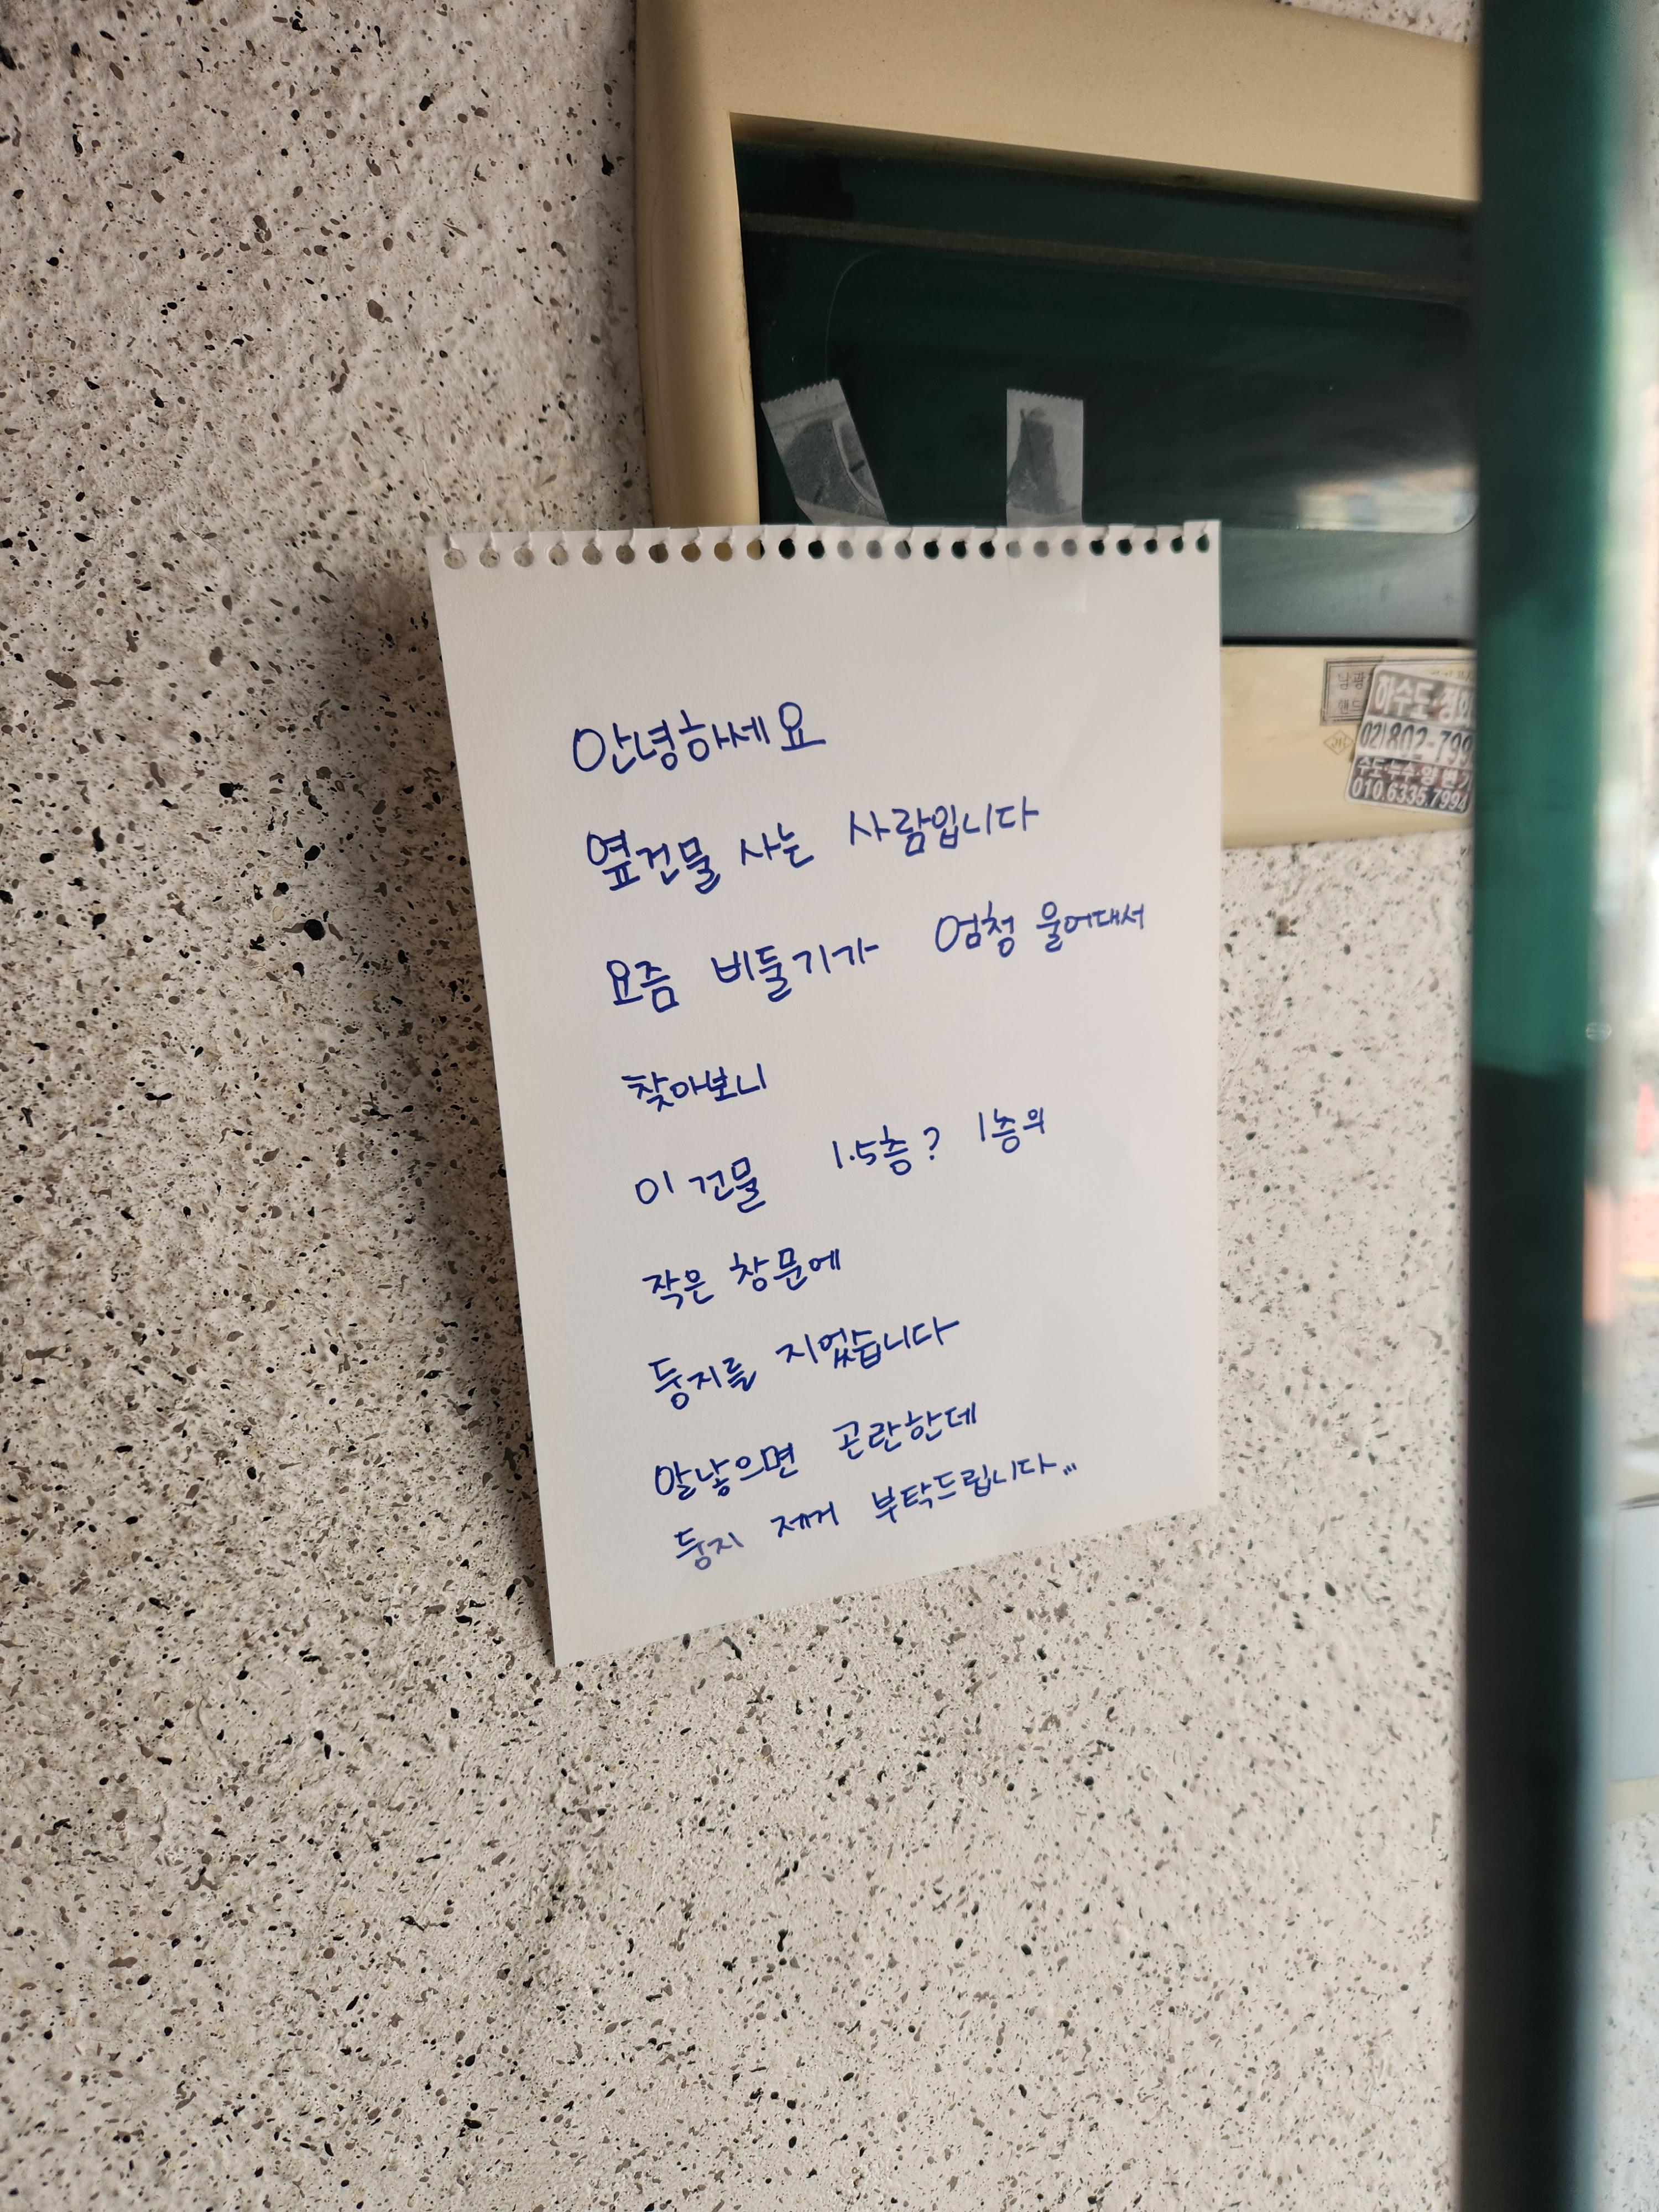 안녕하세요
옆건물 사는 사람입니다
요즘 비둘기가 엄청 울어대서
찾아보니
이 건물 1.5층? 1층위
작은 창문에
둥지를 지었습니다
알낳으면 곤란한데
둥지 제거 부탁드립니다...
하수도
02)802-799
수도누수 양변기
010.6335.7994